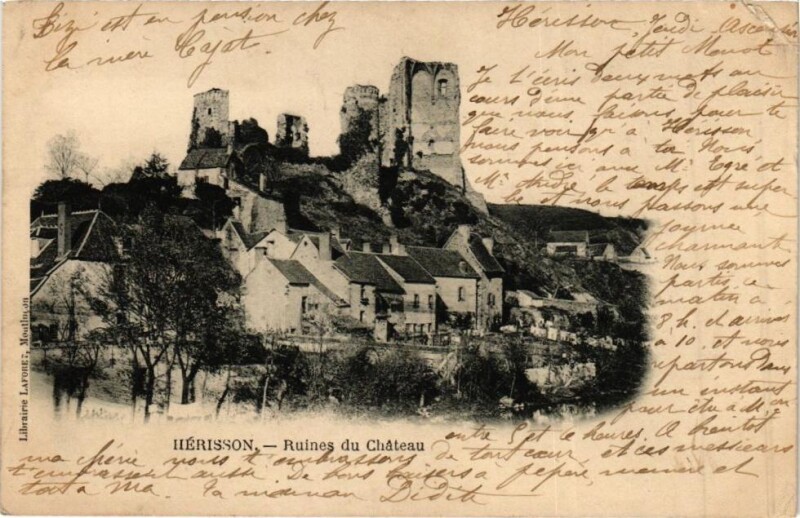 Zizi est en pension chez
la mère Cajat.
Hérisson, Jeudi Ascension
Mon petit
Je t'écris deux mots au
cours d'une partie de plaisir
que nous faisons, pour te
faire voir qu'à Hérisson
nous pensons à ta
sommes ici avec Mr et
Mr le temps est super
be et nous passons une
journée
charmante
Nous sommes
partis ce
matin à
8 h. et arrivés
à 10. et nous
repartons dans
un instant
pour être à
entre 5 et 6 heures. A bientôt
ma chérie, nous t'embrassons de tout cœur et ces messieurs
t'embrassent aussi. De bons baisers à pépère, mémère et
tata Ma. Ta maman
HÉRISSON. — Ruines du Château
Librairie LAFORET, Moulins